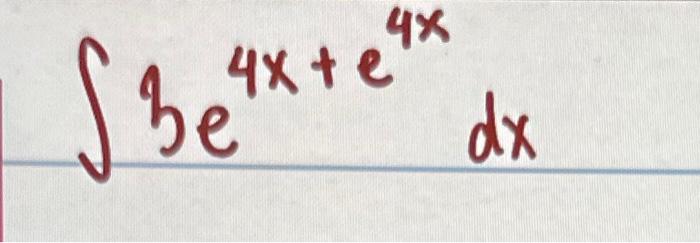 ∫ 3e^{4x + e^{4x}} dx